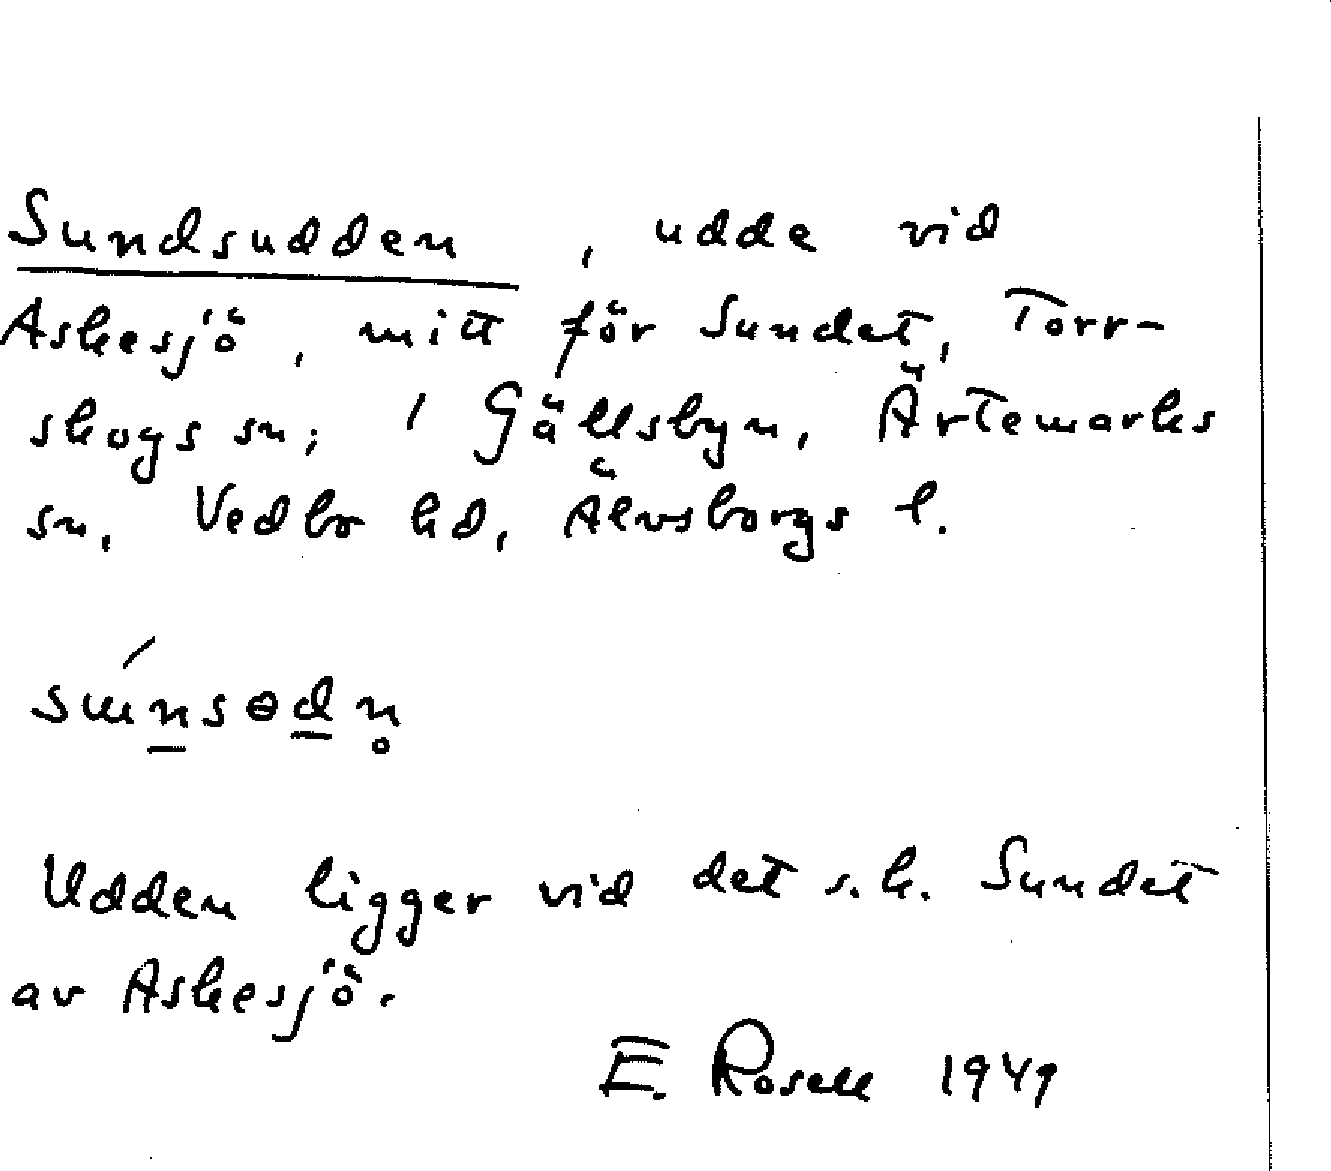 Sundsudden, udde vid
Askesjö, mitt för Sundet, Torr-
skogs sn; i Gällsbyn, Ärtemarks
sn, Vedbo hd, Älvsborgs l.
Udden ligger vid det s.k. Sundet
av Askesjö.
E. Rosell 1949